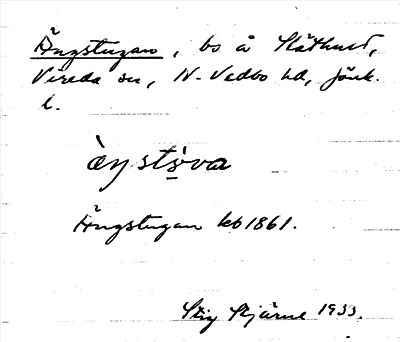 Ängstugan, bs å Släthult,
Vireda sn, N. Vedbo hd, Jönk.
l.
àŋstò̤va
Ängstugan kb 1861.
Stig Skjärne 1933.